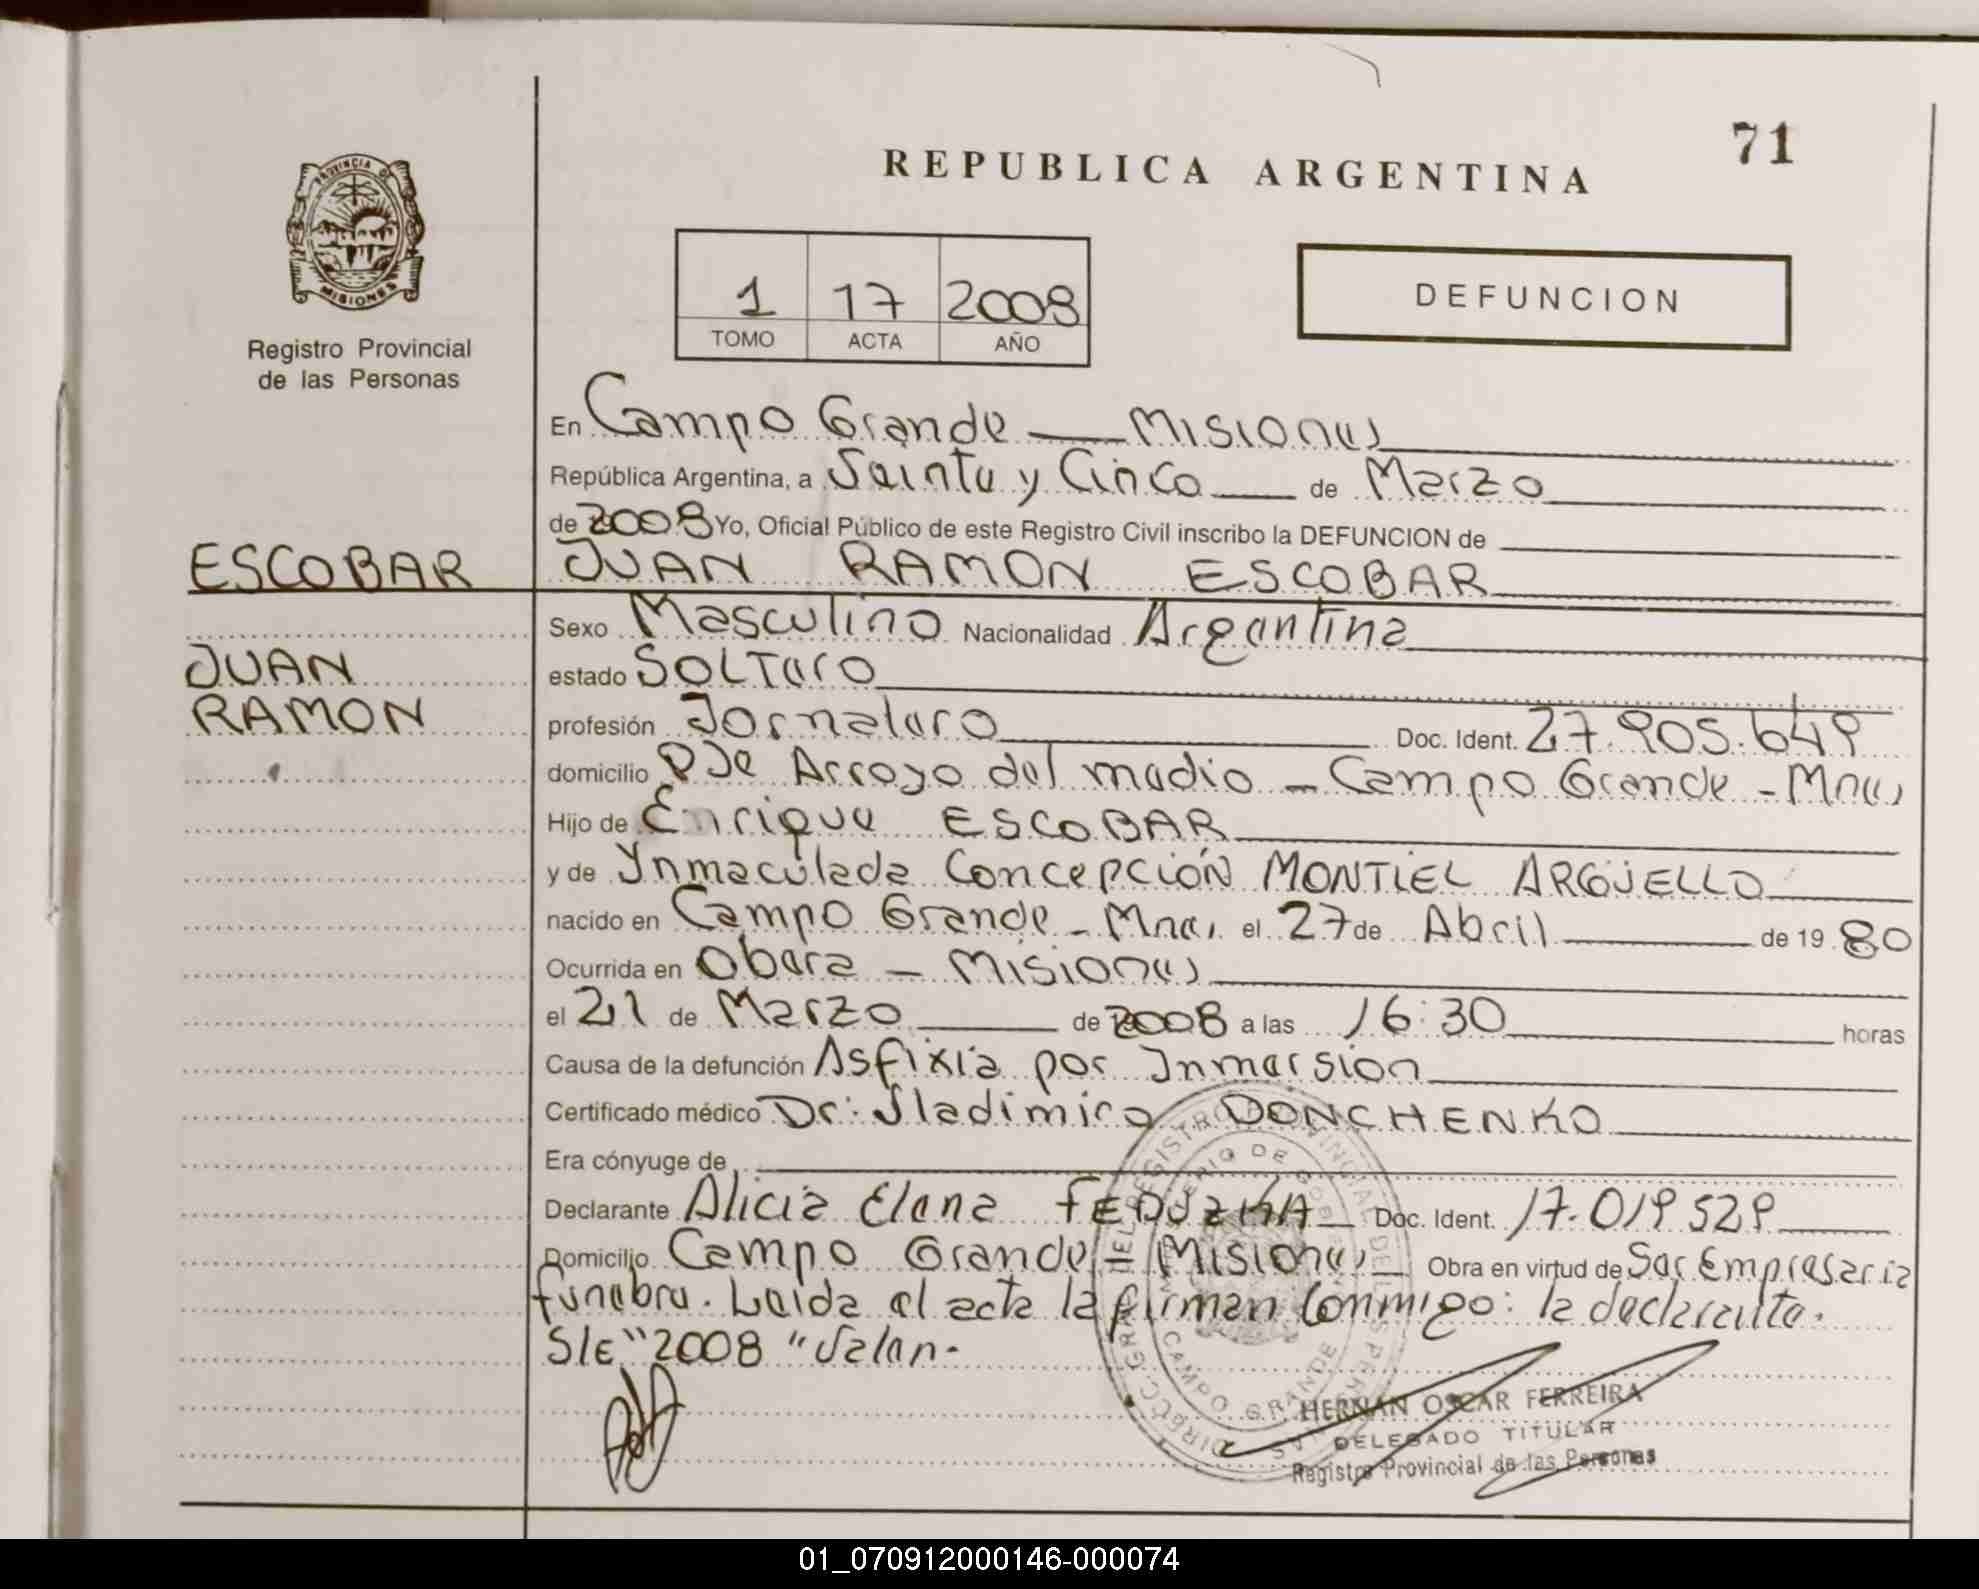 71
REPUBLICA ARGENTINA
PROVINCIA DE
MISIONES
Registro Provincial
de las Personas
1 17 2008
TOMO ACTA AÑO
DEFUNCION
En Campo Grande — Misiones
República Argentina, a Veinte y Cinco — de Marzo
de 2008 Yo, Oficial Público de este Registro Civil inscribo la DEFUNCION de
ESCOBAR JUAN RAMON ESCOBAR
Sexo Masculino Nacionalidad Argentina
JUAN
estado SOLTero
RAMON
profesión Jornalero Doc. Ident. 27.905.649
domicilio Pje Arroyo del medio - Campo Grande - Mnes
Hijo de Enrique ESCOBAR
y de Ynmaculada Concepción MONTIEL ARGÜELLO
nacido en Campo Grande - Mnes el 27 de Abril de 19 80
Ocurrida en Obera - Misiones
el 21 de Marzo de 2008 a las 16:30 horas
Causa de la defunción Asfixia por Inmersion
Certificado médico Dr: Vladimiro DONCHENKO
Era cónyuge de
Declarante Alicia Elena FEDUZKA Doc. Ident. 17.019529
Domicilio Campo Grande = Misiones Obra en virtud de Ser Empresaria
funebre. Leida el acta la firman Conmigo: la declarante.
S/E "2008" Valen.
DIREC. GRAL. DEL REGISTRO PROVINCIAL DE LAS PERSONAS
CAMPO GRANDE
HERNAN OSCAR FERREIRA
DELEGADO TITULAR
Registro Provincial de las Personas
01_070912000146-000074